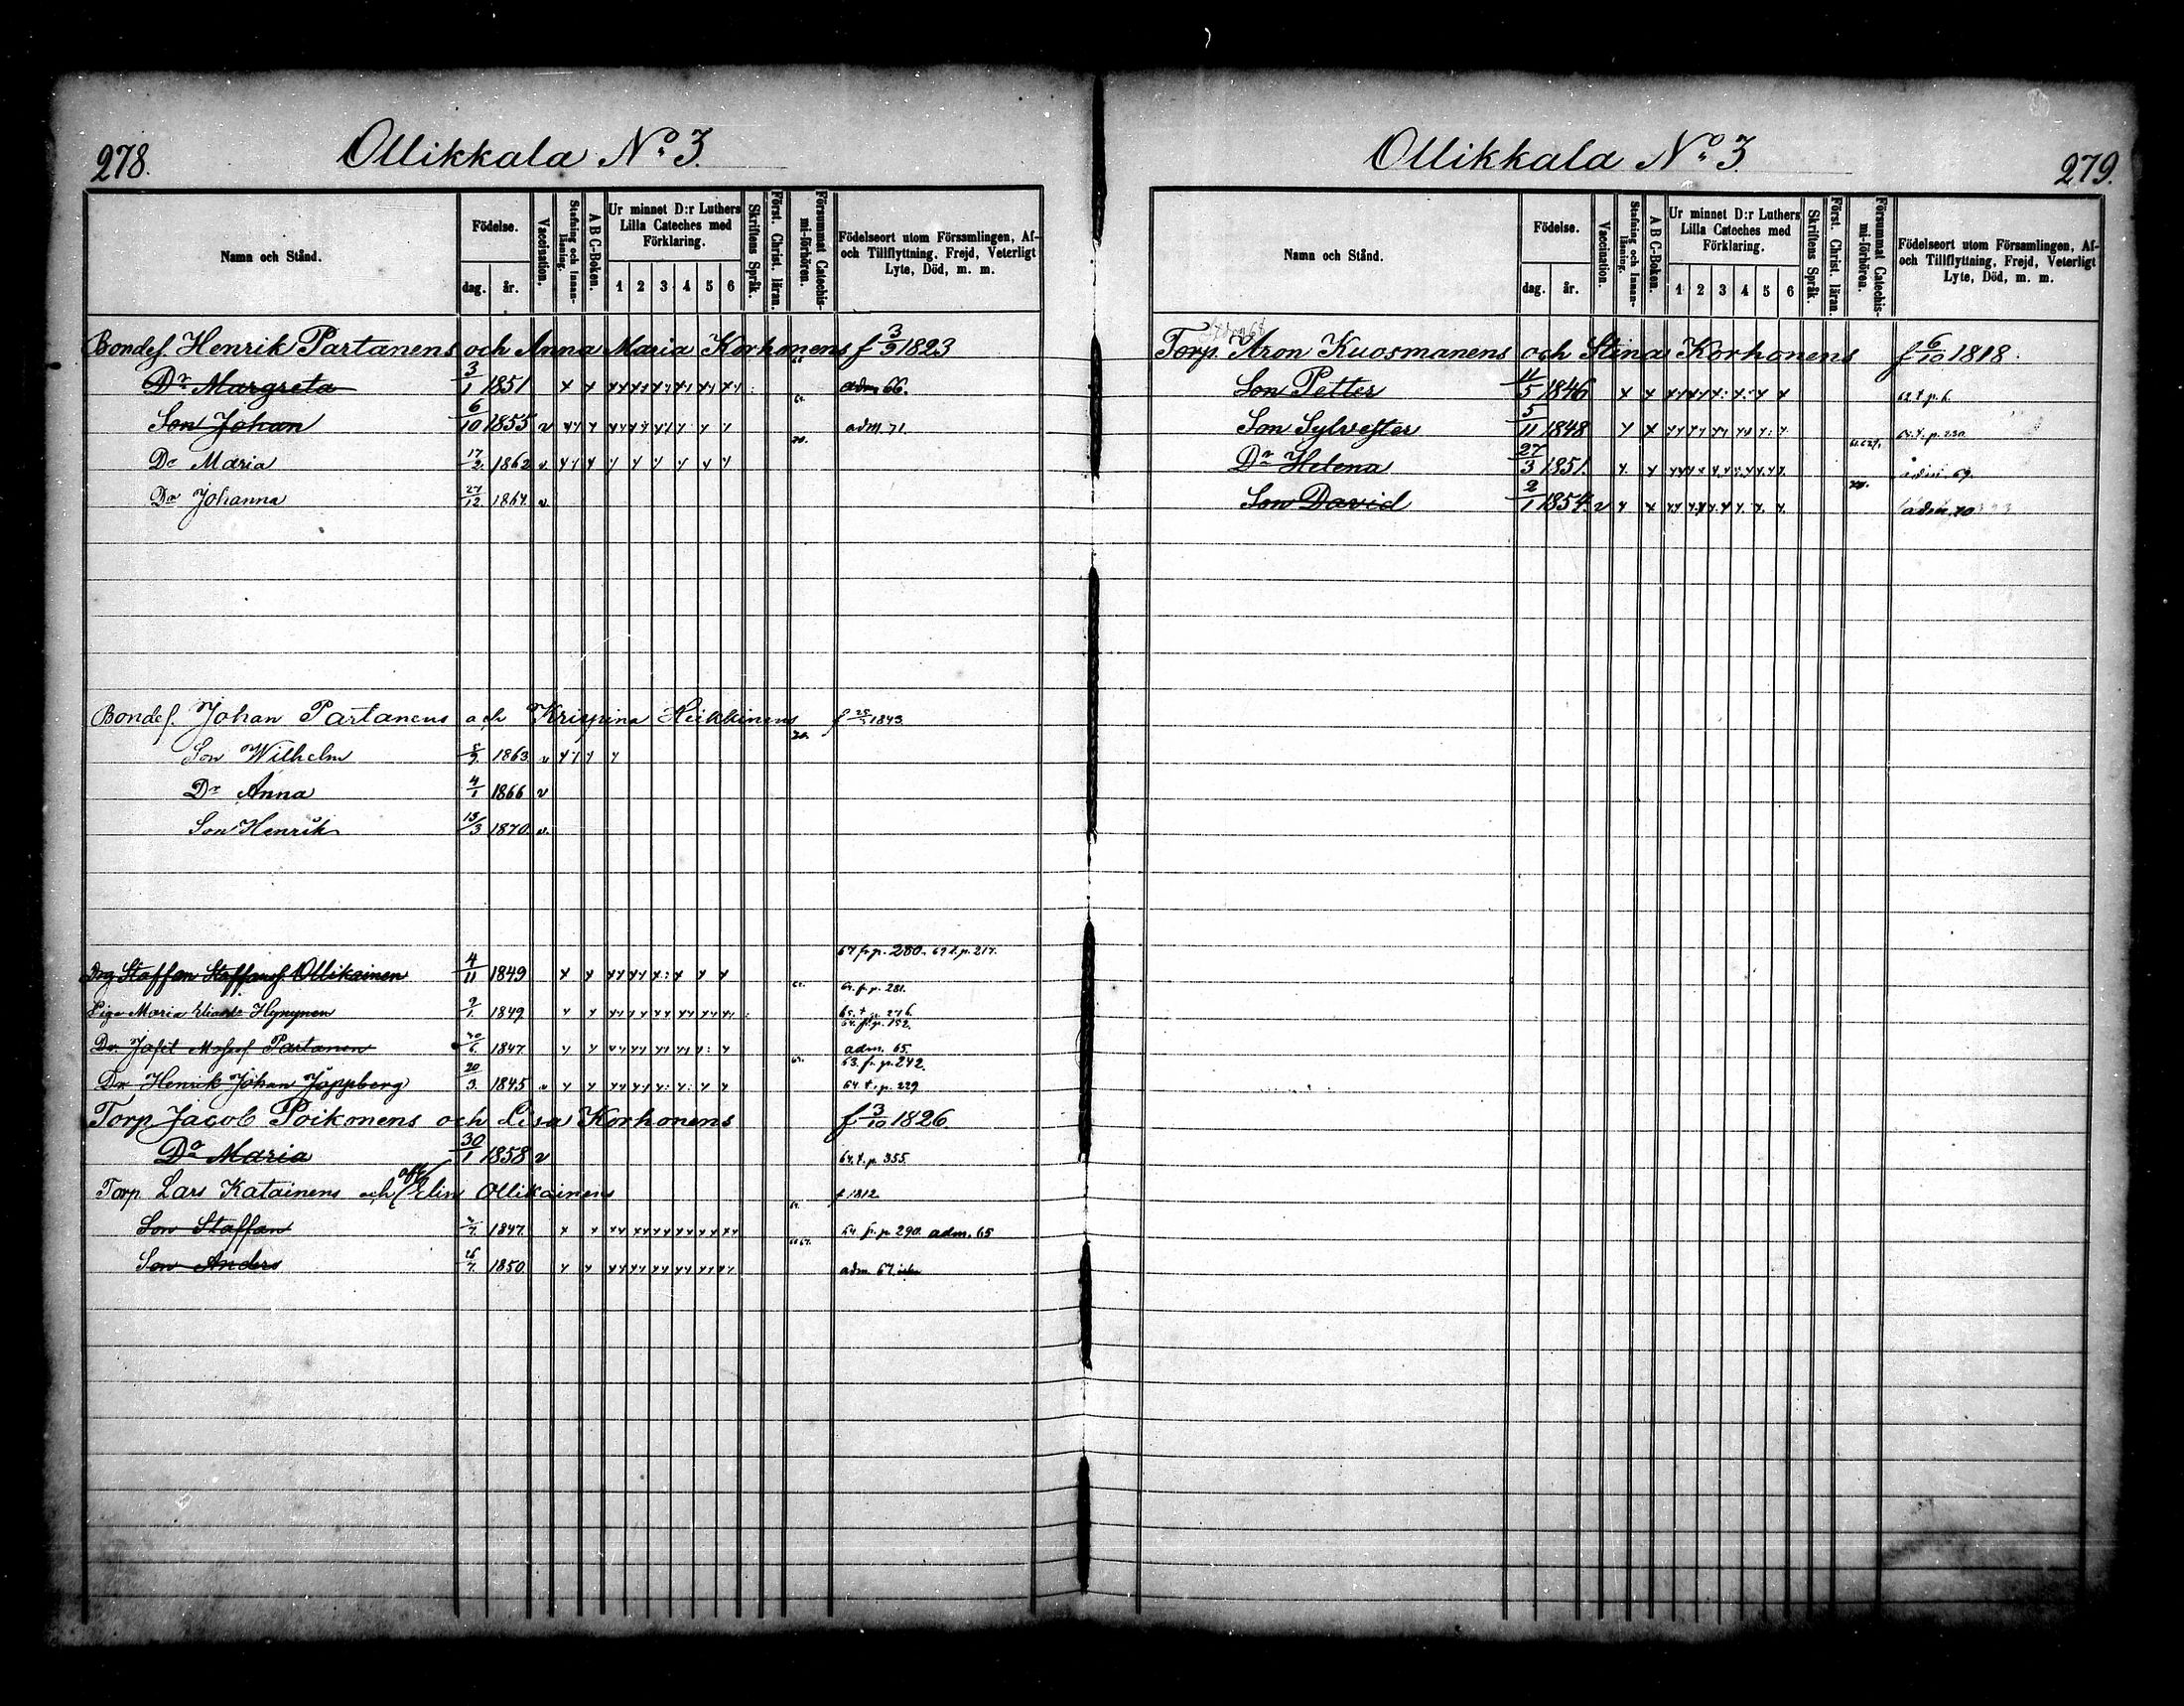 278.
Ollikkala No 3.
Namn och Stånd.
Födelse.
dag.
år.
Vaccination.
Stafning och Innan-läsning.
A B C-Boken.
Ur minnet D:r Luthers Lilla Cateches med Förklaring.
1 2 3 4 5 6
Skriftens Språk.
Först. Christ. läran.
Försummat Catechis-mi-förhören.
Födelseort utom Församlingen, Af- och Tillflyttning, Frejd, Veterligt Lyte, Död, m. m.
Bondes. Henrik Partanens och Anna Maria Korhonens f 3/3 1823
Dr Margreta 3/1 1851 adm. 66.
Son Johan 6/10 1855 v adm. 71.
Dr Maria 17/2 1862 v.
Dr Johanna 27/12 1867. v.
Bondes. Johan Partanens och Krispina Heikkinens 1843
70.
Son Wilhelm 8/9. 1863 v
Dr Anna 4/1 1866 v
Son Henrik 13/3 1870 v.
67 fr p. 280. 69 t. p. 217.
Drg Staffan Staffans. Ollikainen 4/11 1849
64. fr p. 281.
Piga Maria Hynynen 9/1. 1849
65. t. p. 276.
64. fr p. 152.
Dr. Josit Mosess. Partanen 1847 adm. 65.
63. fr. p. 242.
Dr Henrik Johan Joppberg 20/3. 1845 v 64. t. p. 229
Torp Jacob Poikonens och Lisa Korhonens f 3/10 1826.
Dr Maria 30/1 1858 v 64. t. p. 355.
Torp Lars Katainens och Elin Ollikainens f 1812
Son Staffan 1847. 64. fr. p. 290. adm. 65
Son Anders 26/7. 1850 adm. 67
279.
Ollikkala No 3
Namn och Stånd.
Födelse.
dag.
år.
Vaccination.
Stafning och Innan-läsning.
A B C-Boken.
Ur minnet D:r Luthers Lilla Cateches med Förklaring.
1 2 3 4 5 6
Skriftens Språk.
Först. Christ. läran.
Försummat Catechis-mi-förhören.
Födelseort utom Församlingen, Af- och Tillflyttning, Frejd, Veterligt Lyte, Död, m. m.
Torp. Aron Kuosmanens och Stina Korhonens f 6/10 1818.
Son Petter 11/5 1846 62 t. p. 6.
Son Sylvester 5/11 1848 64. t. p. 230
Dr Helena 27/3 1851. adm. 69.
Son David 2/1 1854. v adm. 70